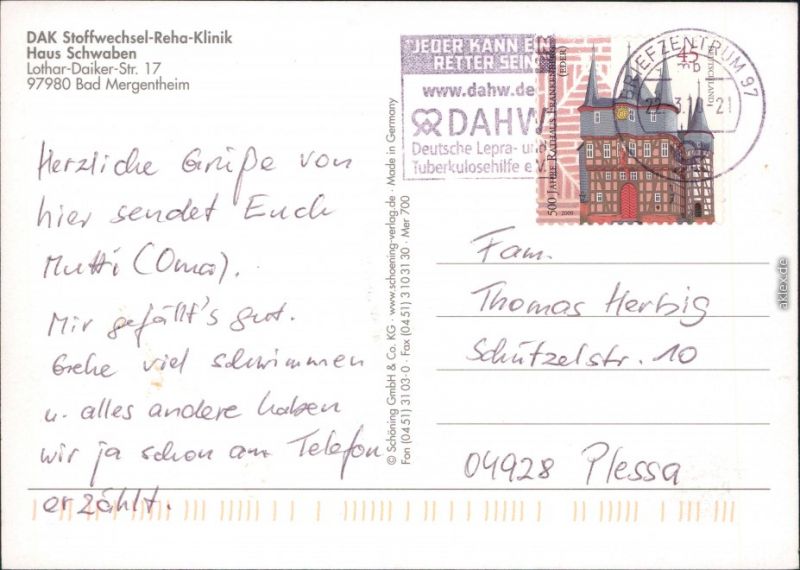 DAK Stoffwechsel-Reha-Klinik
Haus Schwaben
Lothar-Daiker-Str. 17
97980 Bad Mergentheim
Herzliche Grüße von
hier sendet Euch
Mutti (Oma).
Mir gefällt's gut.
Gehe viel schwimmen
u. alles andere haben
wir ja schon am Telefon
erzählt.
© Schöning GmbH & Co. KG · www.schoening-verlag.de · Made in Germany
Fon (0451) 3103-0 · Fax (0451) 3103130 · Mer 700
"JEDER KANN EIN
RETTER SEIN"
www.dahw.de
DAHW
Deutsche Lepra- und
Tuberkulosehilfe e.V.
500 JAHRE RATHAUS FRANKENBERG
(EDER)
45
DEUTSCHLAND
2009
BRIEFZENTRUM 97
Fam.
Thomas Herbig
Schützelstr. 10
04928 Plessa
akpool.de